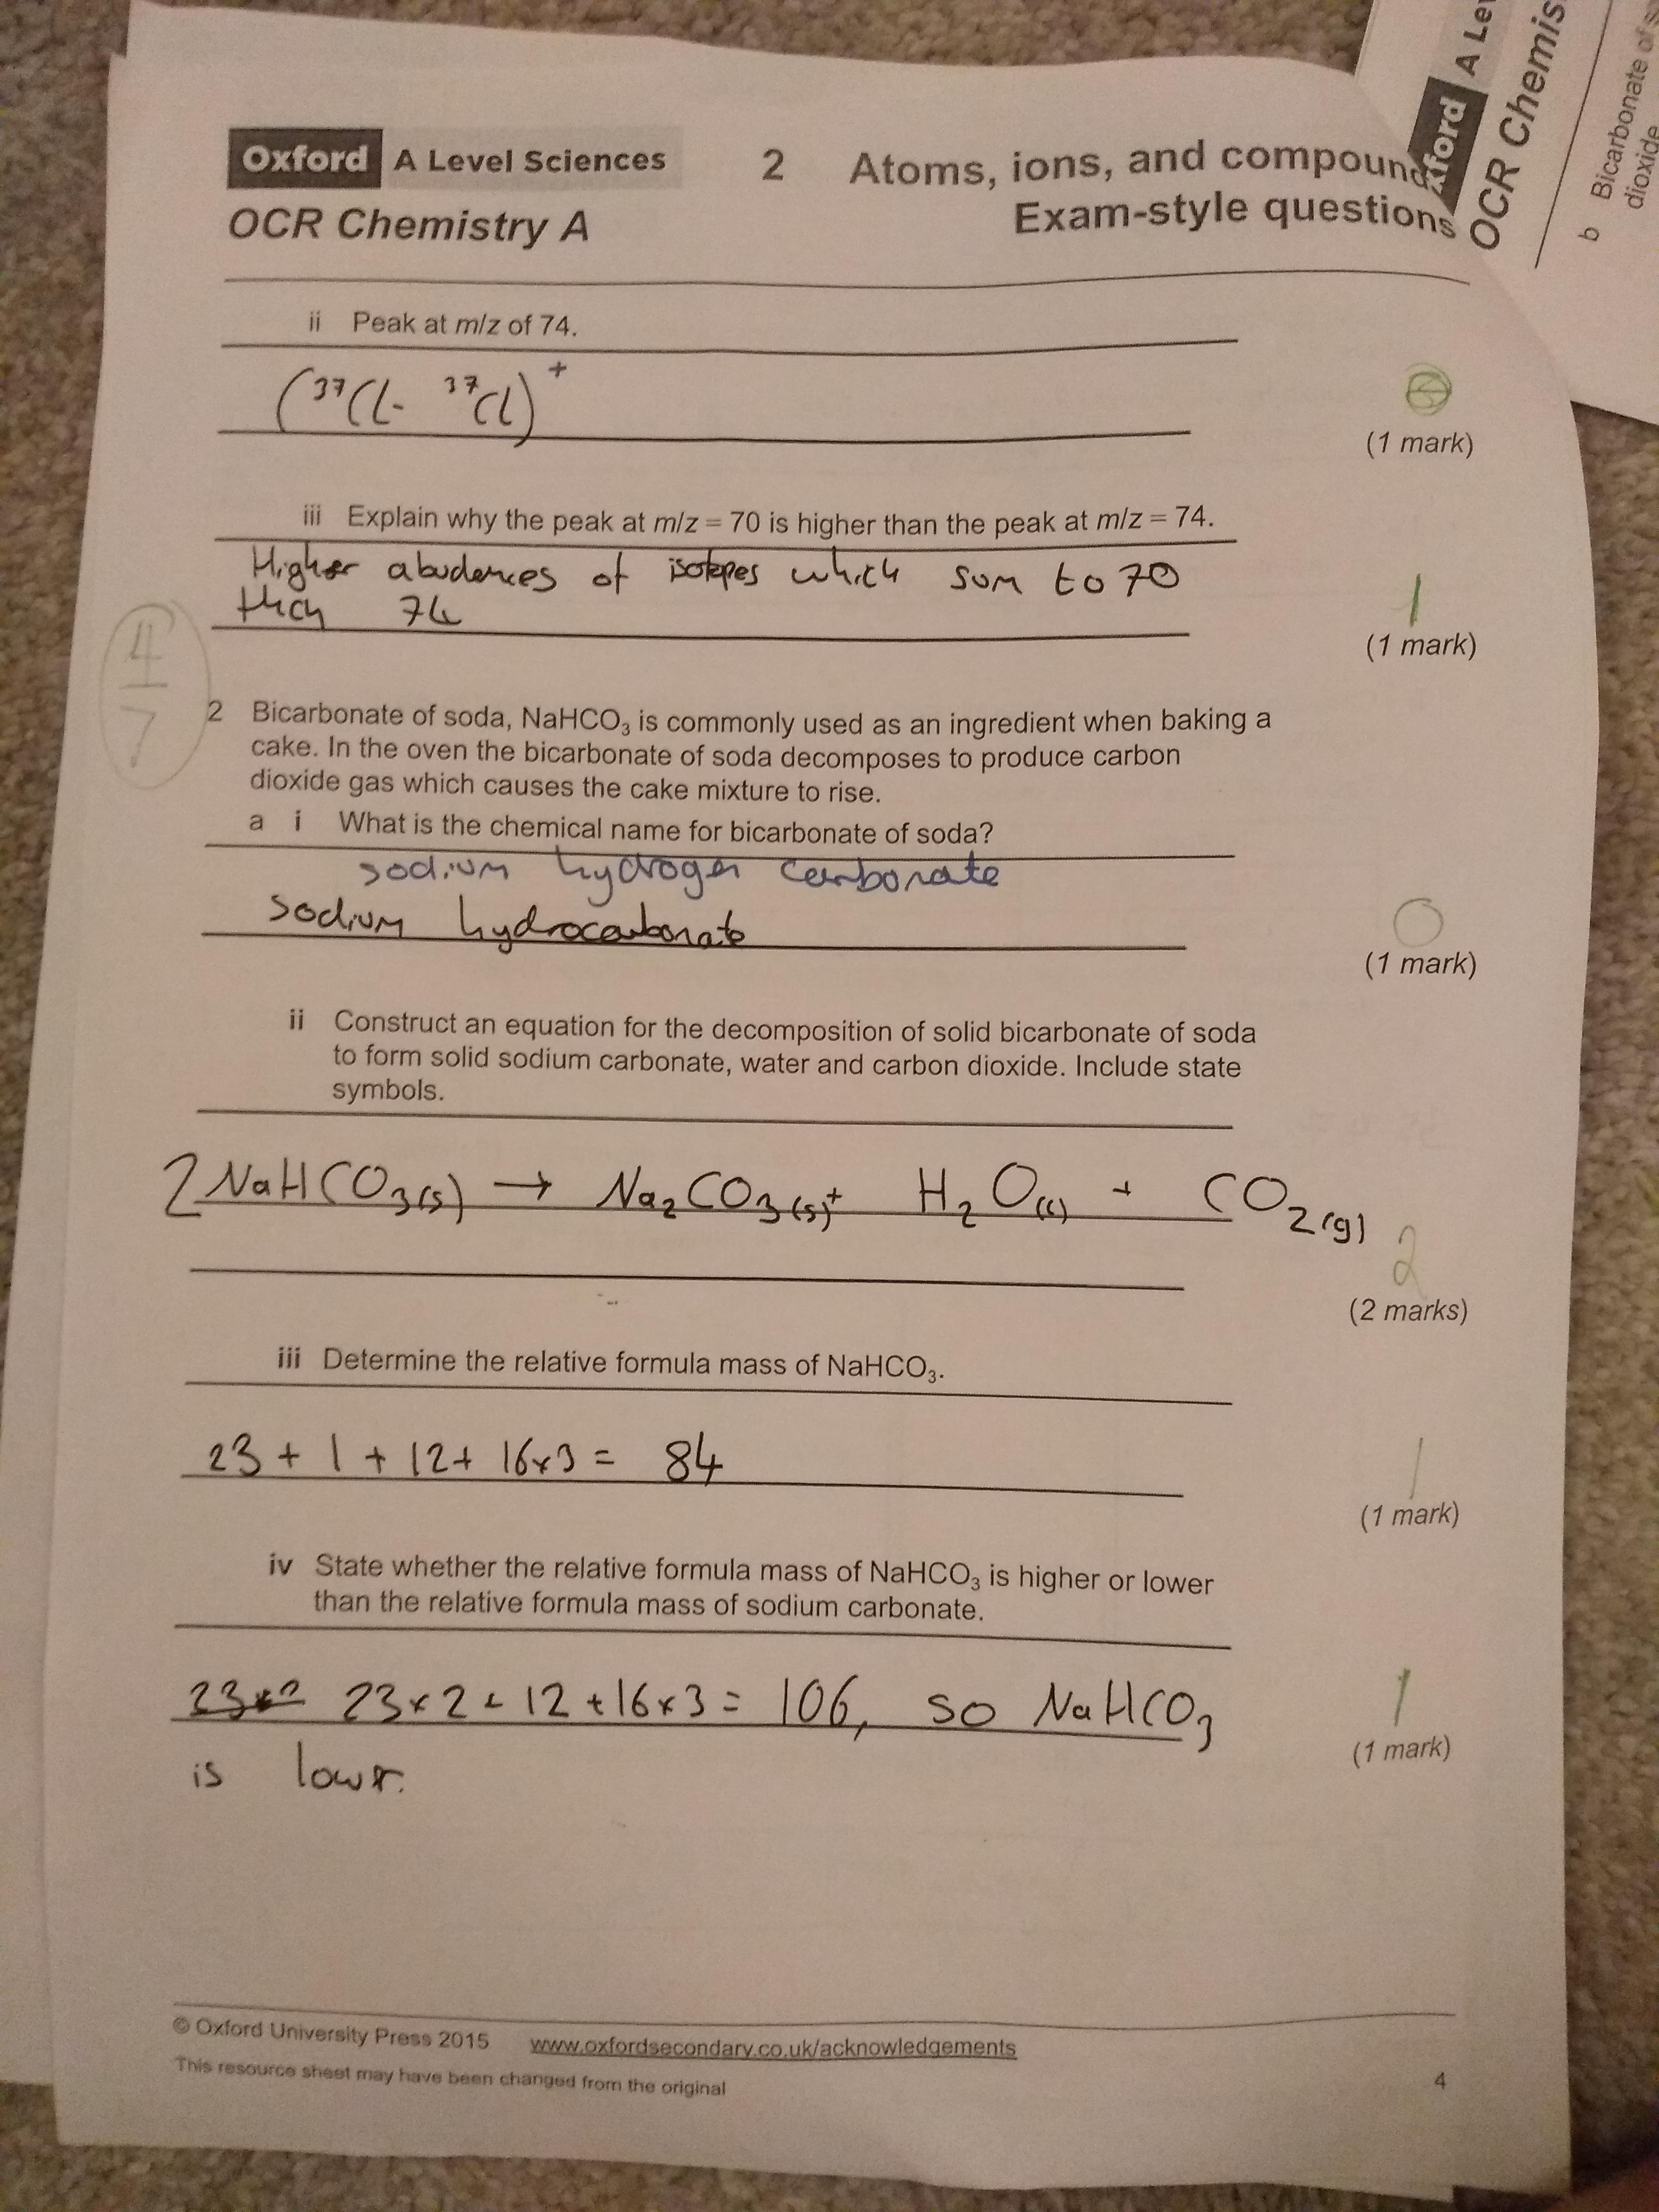 Oxford A Level Sciences
OCR Chemistry A
2 Atoms, ions, and compound
Exam-style questions
ii Peak at m/z of 74.
(³⁷Cl- ³⁷Cl)⁺
(1 mark)
iii Explain why the peak at m/z = 70 is higher than the peak at m/z = 74.
Higher abudences of isotopes which sum to 70
then 74
1
(1 mark)
4/7
2 Bicarbonate of soda, NaHCO₃ is commonly used as an ingredient when baking a
cake. In the oven the bicarbonate of soda decomposes to produce carbon
dioxide gas which causes the cake mixture to rise.
a i What is the chemical name for bicarbonate of soda?
sodium hydrogen carbonate
sodium hydrocarbonate
0
(1 mark)
ii Construct an equation for the decomposition of solid bicarbonate of soda
to form solid sodium carbonate, water and carbon dioxide. Include state
symbols.
2NaHCO₃(s) → Na₂CO₃(s) + H₂O(l) + CO₂(g)
2
(2 marks)
iii Determine the relative formula mass of NaHCO₃.
23 + 1 + 12 + 16×3 = 84
1
(1 mark)
iv State whether the relative formula mass of NaHCO₃ is higher or lower
than the relative formula mass of sodium carbonate.
23×2 23×2 + 12 + 16×3 = 106, so NaHCO₃
is lower.
1
(1 mark)
© Oxford University Press 2015 www.oxfordsecondary.co.uk/acknowledgements
This resource sheet may have been changed from the original
4
xford A Le
OCR Chemis
b Bicarbonate of s
dioxide